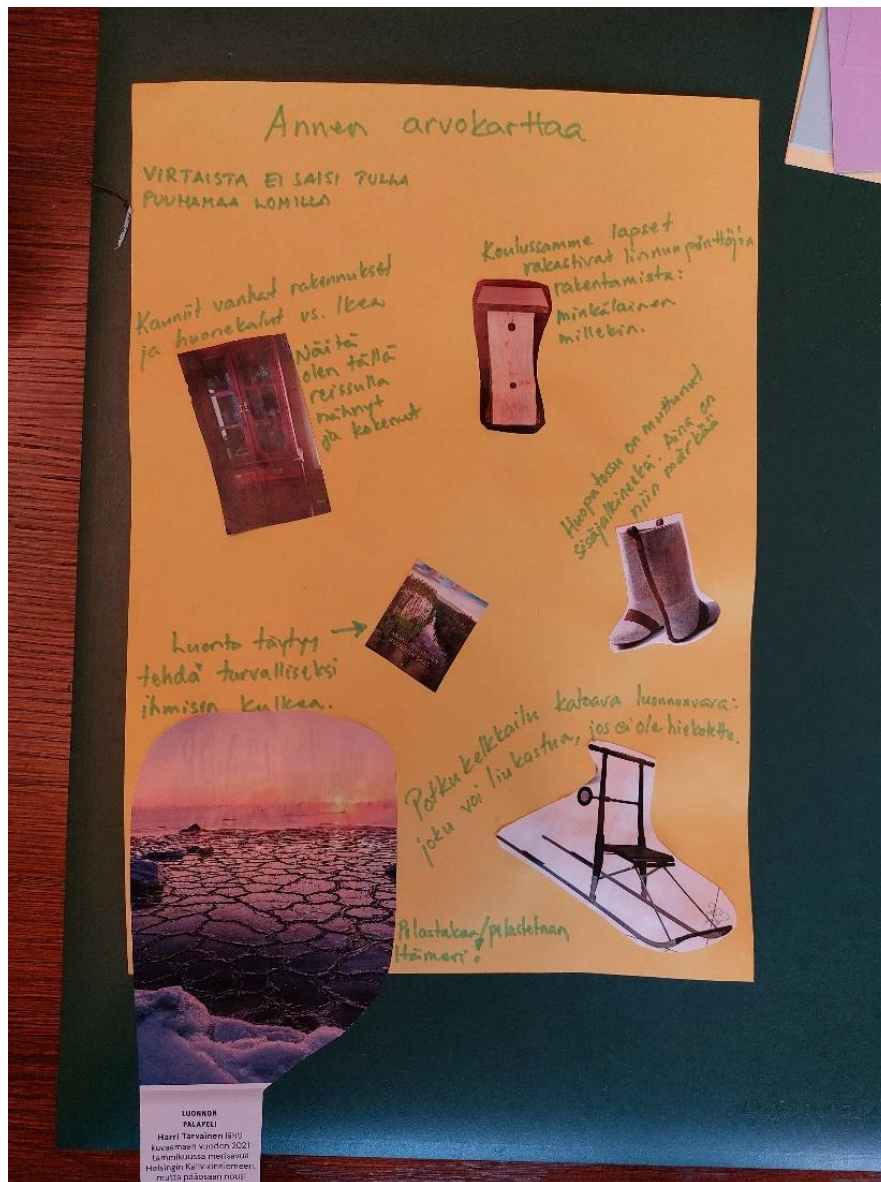 Annen arvokarttaa
VIRTAISTA EI SAISI TULLA
PUUHAMAA LOMILLA
Kauniit vanhat rakennukset
ja huonekalut vs. Ikea
Näitä
olen tällä
reissulla
nähnyt
ja kokenut
Koulussamme lapset
rakastivat linnunpönttöjen
rakentamista:
minkälainen
millekin.
Huopatossu on muuttunut
sisäjalkineeksi. Aina on
niin märkää
Luonto täytyy →
tehdä turvalliseksi
ihmisen kulkea.
Potkukelkkailu katoava luonnonvara:
joku voi liukastua, jos ei ole hiekotettu.
Pelastakaa/pelastetaan
Itämeri!
LUONNON
PALAPELI
Harri Tarvainen lähti
kuvaamaan vuoden 2021
tammikuussa merisavua
Helsingin Kallvikinniemeen,
mutta pääosaan nousi